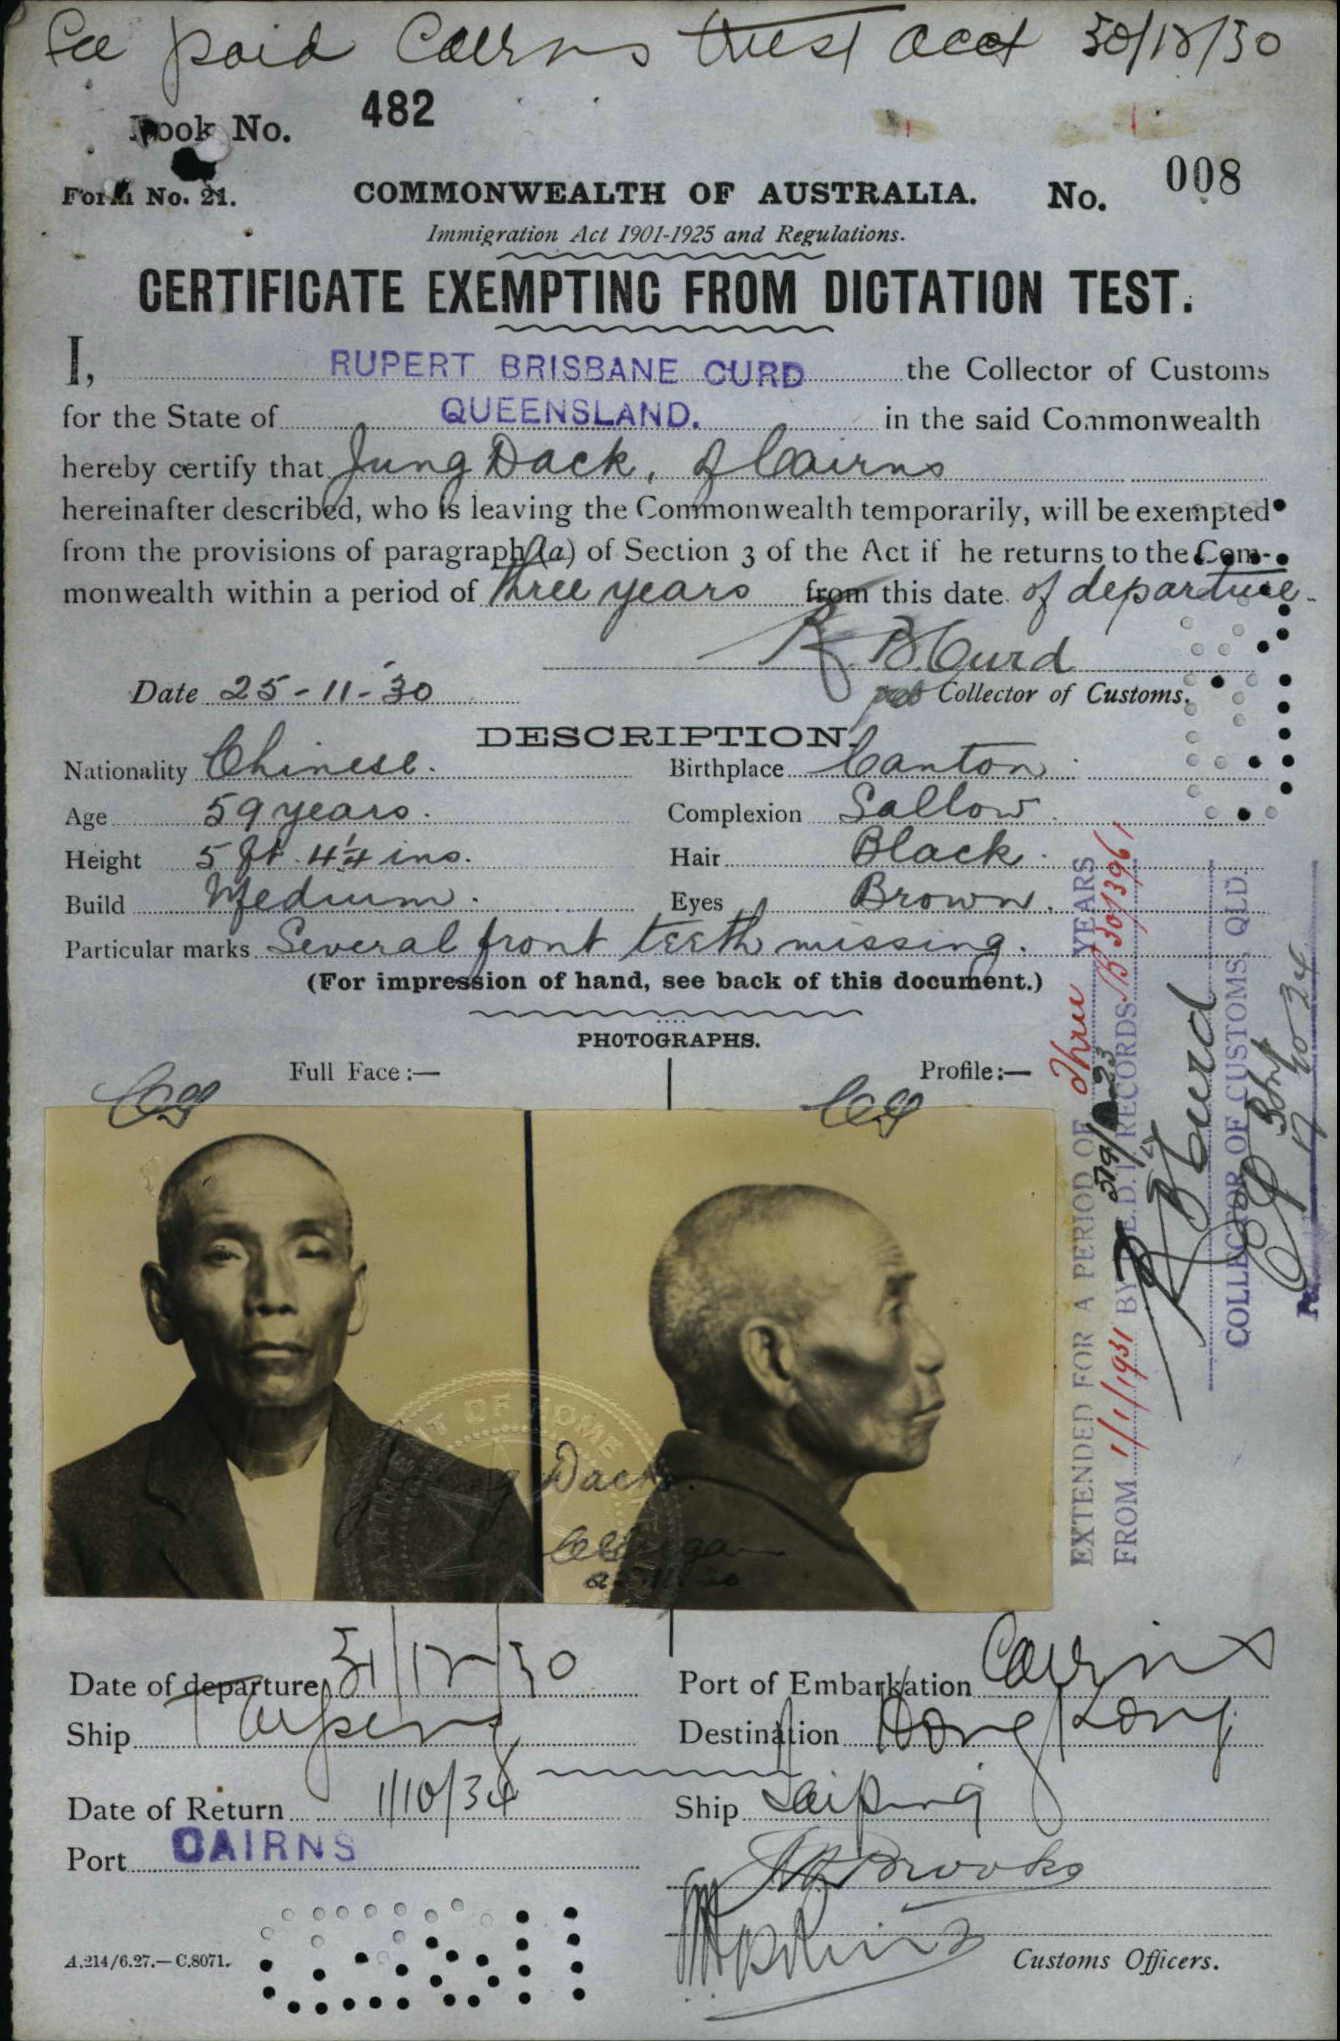 Fee paid Cairns trust acct 30/12/30
Book No. 482
Form No. 21.
COMMONWEALTH OF AUSTRALIA. No. 008
Immigration Act 1901-1925 and Regulations.
CERTIFICATE EXEMPTING FROM DICTATION TEST.
I, RUPERT BRISBANE CURD the Collector of Customs
for the State of QUEENSLAND. in the said Commonwealth
hereby certify that Jung Dack, of Cairns
hereinafter described, who is leaving the Commonwealth temporarily, will be exempted
from the provisions of paragraph (a) of Section 3 of the Act if he returns to the Com-
monwealth within a period of three years from this date of departure.
R. B. Curd
Date 25-11-30 Collector of Customs.
DESCRIPTION.
Nationality Chinese. Birthplace Canton
Age 59 years. Complexion Sallow.
Height 5 ft. 4¼ ins. Hair Black.
Build Medium. Eyes Brown.
Particular marks Several front teeth missing.
(For impression of hand, see back of this document.)
PHOTOGRAPHS.
Full Face:— Profile:—
EXTENDED FOR A PERIOD OF Three YEARS
FROM 1/1/1931 BY RECORDS B 30/13961
R B Curd
COLLECTOR OF CUSTOMS, QLD.
OF HOME
Jung Dack.
Date of departure 31/12/30 Port of Embarkation Cairns
Ship Taiping Destination Hong Kong
Date of Return 1/10/34 Ship Taiping
Port CAIRNS
Brooks
A.214/6.27.—C.8071. Customs Officers.